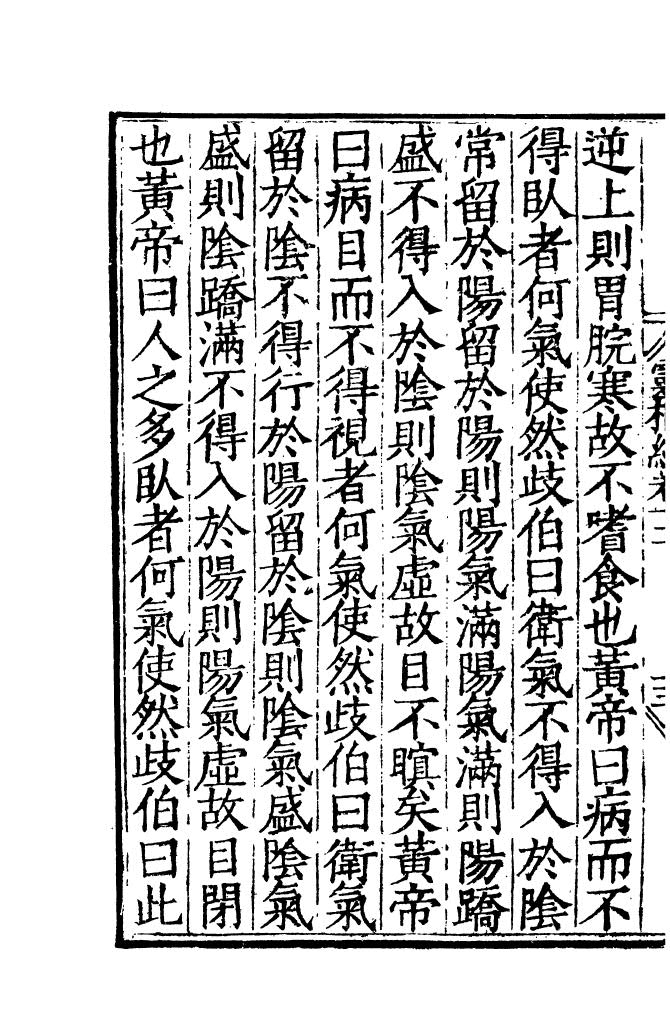 逆上則胃脘寒故不嗜食也黃帝曰病而不
得臥者何氣使然歧伯曰衛氣不得入於陰
常留於陽留於陽則陽氣滿陽氣滿則陽蹻
盛不得入於陰則陰氣虛故目不瞑矣黃帝
曰病目而不得視者何氣使然歧伯曰衛氣
留於陰不得行於陽留於陰則陰氣盛陰氣
盛則陰蹻滿不得入於陽則陽氣虛故目閉
也黃帝曰人之多臥者何氣使然歧伯曰此